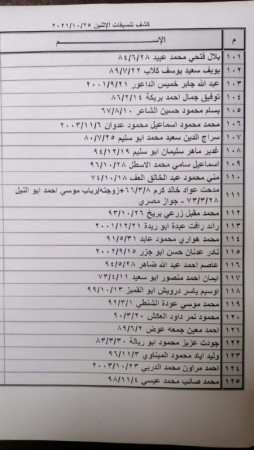 كشف تنسيقات الاثنين ٢٠٢١/١٠/٢٥
م الإسم
١٠١ بلال فتحي محمد عبيد ٨٤/٦/٢٨
١٠٢ يوسف سعيد يوسف كلاب ٨٩/٧/٢٢
١٠٣ عبد الله جابر خميس الداعور ٢٠٠١/٩/٢١
١٠٤ توفيق جمال احمد بريكة ٨٦/٢/١٤
١٠٥ بسام محمود حسين الشاعر ٦٧/٨/١٠
١٠٦ محمد محمود اسماعيل محمود عدوان ٢٠٠٣/١١/٦
١٠٧ سراج الدين سعيد محمد ابو سليم ٨٠/٧/٢٥
١٠٨ غدير ماهر سليمان ابو سليم ٩٤/١٢/١٩
١٠٩ اسماعيل سامي محمد الاسطل ٩٦/١٠/٢٨
١١٠ مني محمود عبد الخالق العف ٧٤/١٠/١٨
١١١ مدحت عواد خالد كرم ٦٦/٣/٨+زوجته/رباب موسي احمد ابو النيل ٧٣/٣/٢٨- جواز مصري
١١٢ محمد مقبل زرعي بريخ ٩٣/١٠/٢١
١١٣ رائد رافت عبدة ابو ريدة ٢٠٠١/١٢/٢١
١١٤ محمد هواري محمود عابد ٩١/٥/٣١
١١٥ نادر عدنان حسن ابو جزر ٢٠٠٢/٩/١٥
١١٦ عاصم احمد عبد الله ضاهر ٩٤/٥/٢٨
١١٧ ايمان احمد منصور ابو سعيد ٧٣/٤/١١
١١٨ اوسيم ياسر درويش ابو القمبز ٩٩/١٠/١٣
١١٩ محمد موسي عودة الشنطي ٩٢/٣/١
١٢٠ محمود نمر داود العكش ٩٠/٣/٢٠
١٢١ احمد معين جمعه عوض ٨٩/٦/٢
١٢٢ جودت عزيز محمود ابو ريالة ٨٣/٣/٣٠
١٢٣ وليد اياد محمود الميناوي ٩٦/١١/٣
١٢٤ احمد مراون محمد الدربي ٢٠٠٣/١٠/٢٣
١٢٥ محمد صائب محمد عيسي ٩٨/١١/٤